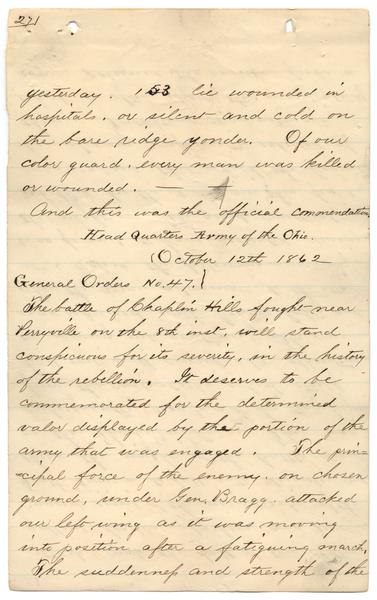 271
yesterday. 153 lie wounded in
hospitals, or silent and cold on
the bare ridge yonder. Of our
color guard, every man was killed
or wounded. —
And this was the official commendation
Head Quarters Army of the Ohio.
October 12th 1862
General Orders No. 47.}
The battle of Chaplin Hills fought near
Perryville on the 8th inst, will stand
conspicuous for its severity, in the history
of the rebellion. It deserves to be
commemorated for the determined
valor displayed by the portion of the
army that was engaged. The prin=
=cipal force of the enemy, on chosen
ground, under Gen. Bragg, attacked
our left wing as it was moving
into position after a fatiguing march.
The suddenness and strength of the